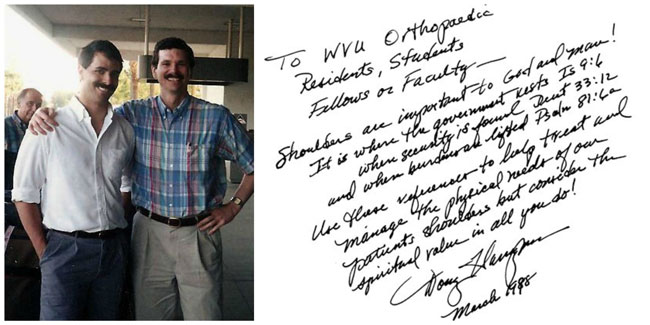 To WVU Orthopaedic
Residents, Students
Fellows or Faculty—
Shoulders are important to God and man!
It is where the government rests Is 9:6
where security is found Deut 33:12
and where burdens are lifted Psalm 81:6a
Use these references to help treat and
manage the physical needs of our
patients shoulders but consider the
spiritual value in all you do!
Doug
March 1988